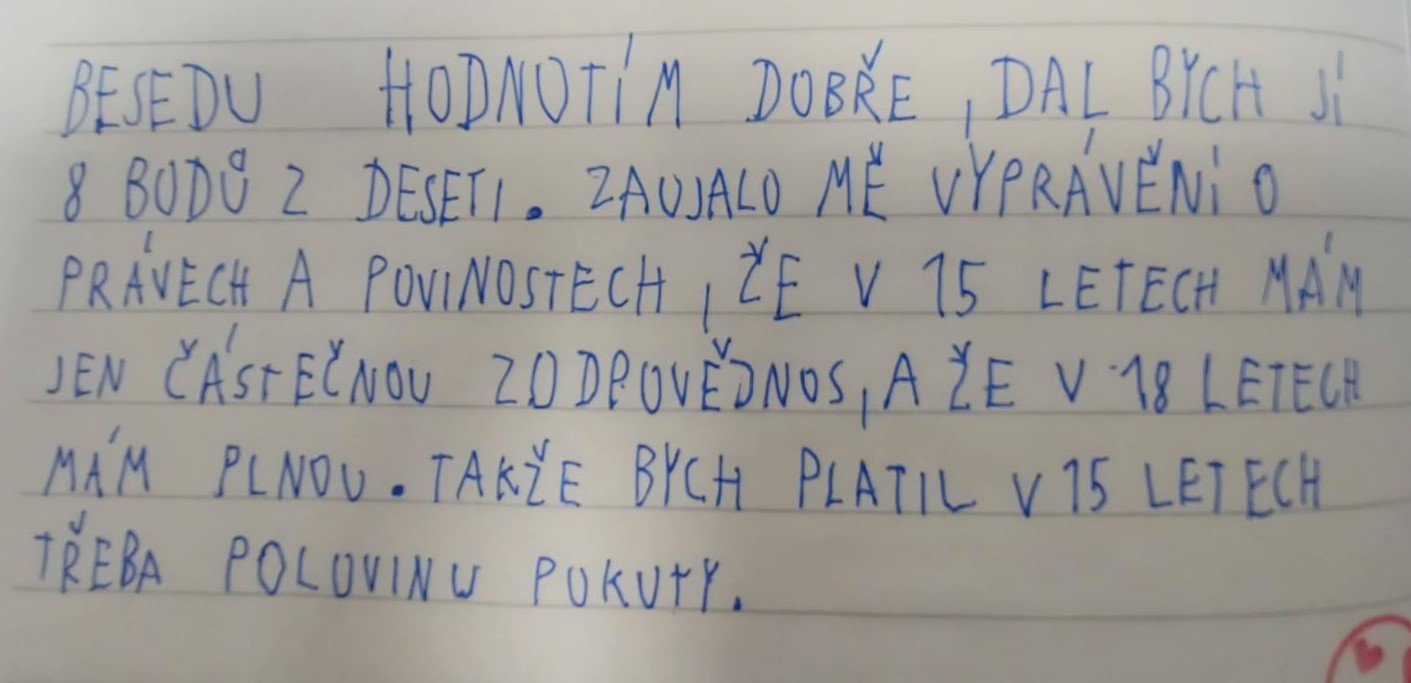 BESEDU HODNOTÍM DOBŘE, DAL BYCH JÍ
8 BODŮ Z DESETI. ZAUJALO MĚ VYPRÁVĚNÍ O
PRÁVECH A POVINOSTECH, ŽE V 15 LETECH MÁM
JEN ČÁSTEČNOU ZODPOVĚDNOS, A ŽE V 18 LETECH
MÁM PLNOU. TAKŽE BYCH PLATIL V 15 LETECH
TŘEBA POLOVINU POKUTY.